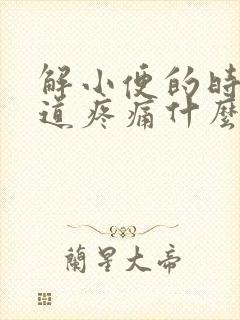 解小便的时
道疼痛什麼
蘭星大帝